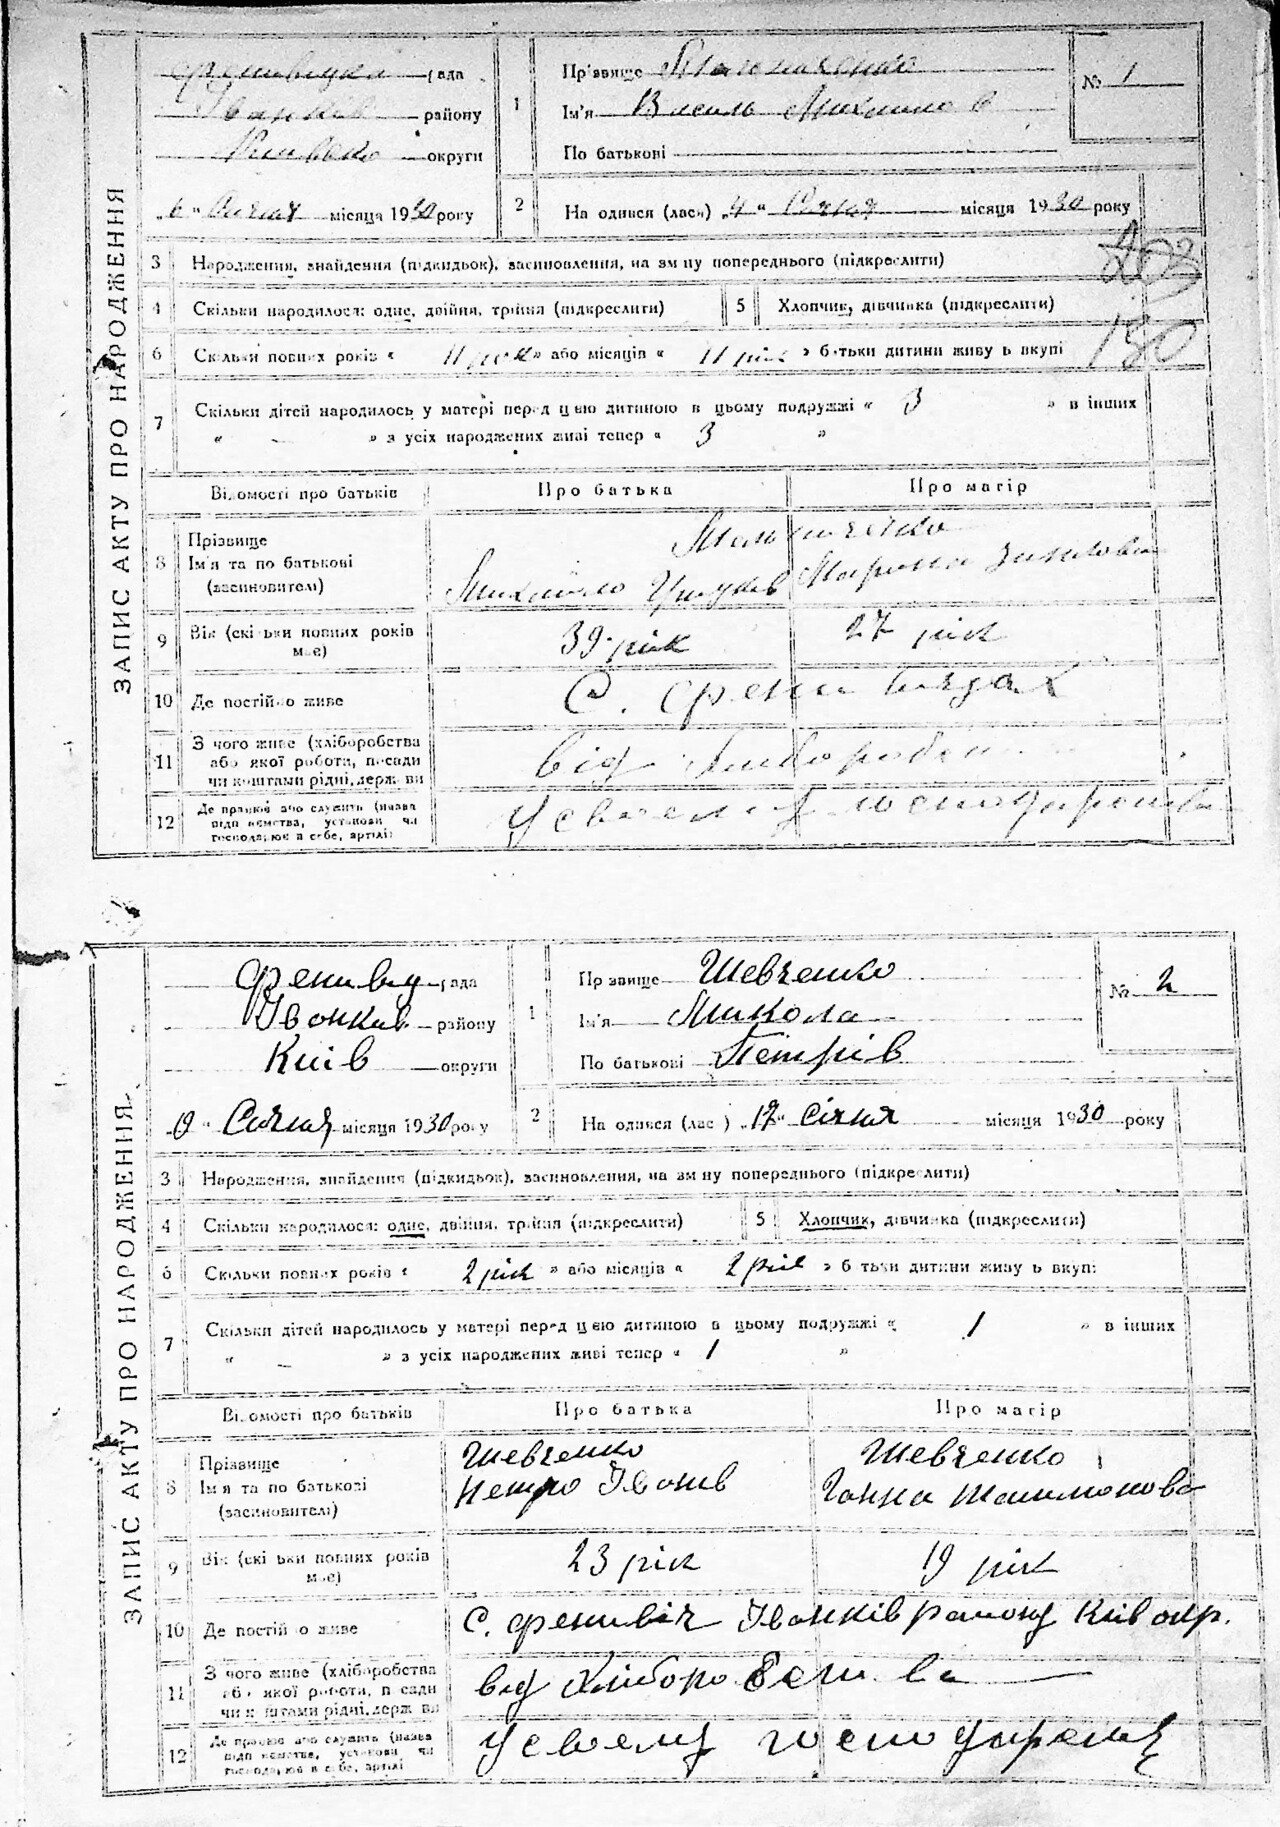 ЗАПИС АКТУ ПРО НАРОДЖЕННЯ
рада
Іванків району
округи
Прізвище
№ 1
1 Ім'я Василь Михайлов
По батькові
„6" Січня місяця 1930 року
2 На одився (лась) „4" Січня місяця 1930 року
203
3 Народження, знайдення (підкидьок), засиновлення, на зм ну попереднього (підкреслити)
4 Скільки народилося: одне, двійня, трійня (підкреслити)
5 Хлопчик, дівчинка (підкреслити)
180
6 Скільки повних років « 11 рік » або місяців « 11 рік » б тьки дитини живу ь вкупі
7 Скільки дітей народилось у матері перед ц ею дитиною в цьому подружжі « 3 » в інших
« — » з усіх народжених живі тепер « 3 »
Відомості про батьків
Про батька
Про матір
8 Прізвище
Ім'я та по батькові
(засиновителі)
Михайло
Марина
9 Вік (скі ьки повних років має)
39 рік
27 рік
10 Де постійно живе
С.
11 З чого живе (хліборобства
або якої роботи, посади
чи коштами рідні, держ ви
від
12 Де працює або служить (назва
підп иємства, установи чи
господарює в себе, артілі)
У своему господарстві
ЗАПИС АКТУ ПРО НАРОДЖЕННЯ
Фенивич рада
Іванків району
Київ округи
Пр звище Шевченко
№ 2
1 Ім'я Микола
По батькові Петрів
„19" Січня місяця 1930 року
2 На одився (лас ) „12" Січня місяця 1930 року
3 Народження, знайдення (підкидьок), засиновлення, на зм ну попереднього (підкреслити)
4 Скільки народилося: одне, двійня, трійня (підкреслити)
5 Хлопчик, дівчинка (підкреслити)
6 Скільки повних років « 2 рік » або місяців « 2 рік » б тьки дитини живу ь вкупі
7 Скільки дітей народилось у матері перед ц ею дитиною в цьому подружжі « 1 » в інших
« — » з усіх народжених живі тепер « 1 »
Відомості про батьків
Про батька
Про матір
8 Прізвище
Ім'я та по батькові
(засиновителі)
Шевченко
Петро Іванів
Шевченко
Ганна
9 Вік (скі ьки повних років має)
23 рік
19 рік
10 Де постій о живе
С. Фенивіч Іванків району Київ окр.
11 З чого живе (хліборобства
або якої роботи, п сади
чи к штами рідні, держ ви
від Хліборобства
12 Де працює або служить (назва
підп иємства, установи чи
господарює в себе, артілі
У своему